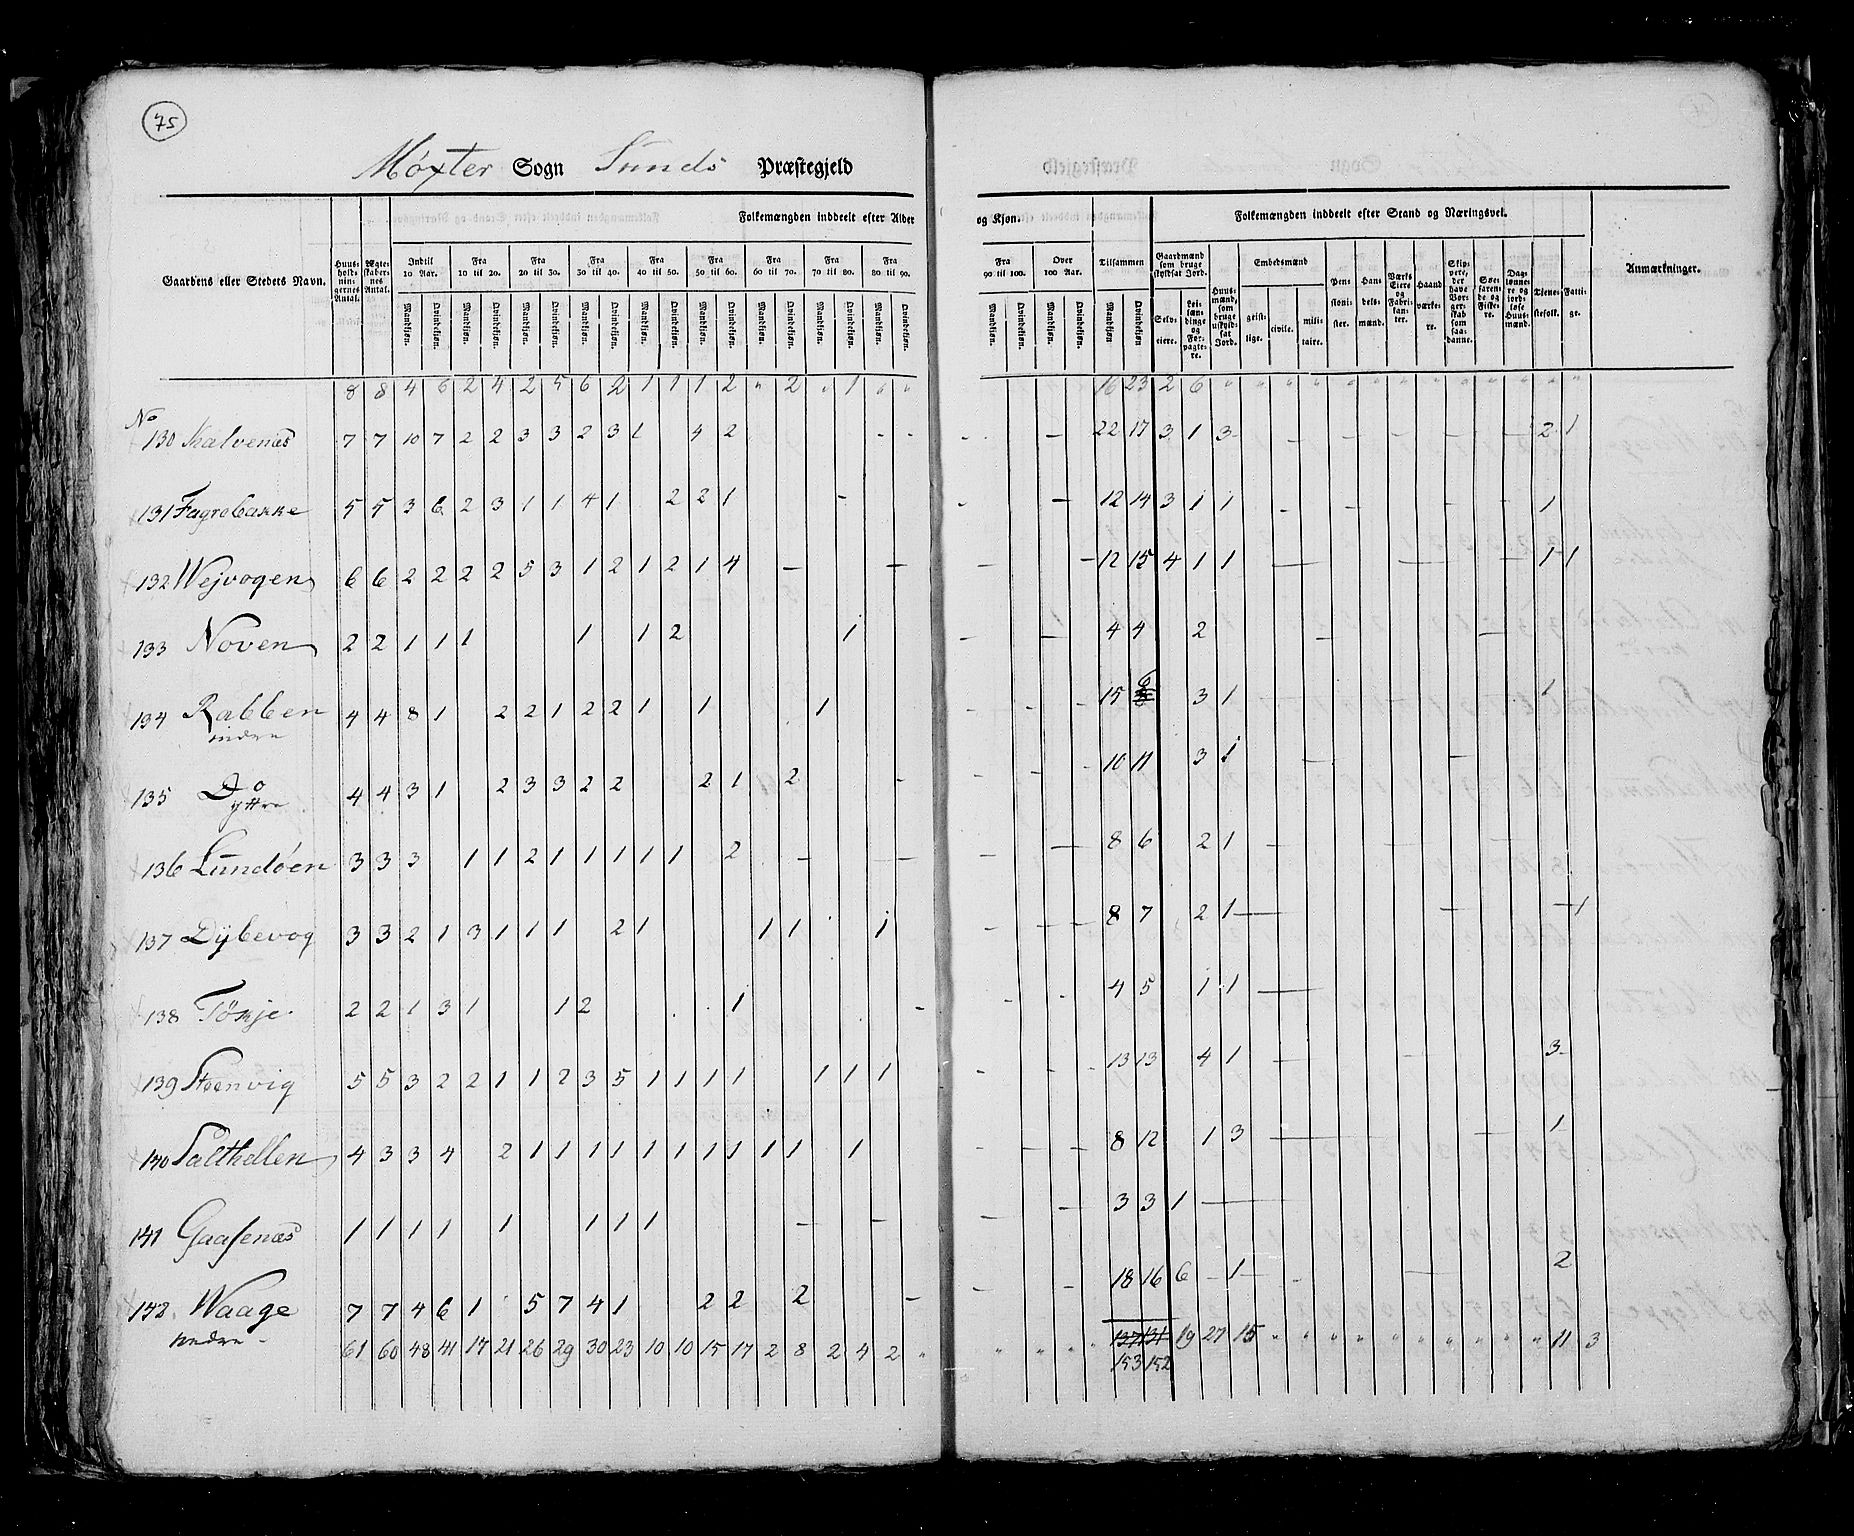 75
Møxter Sogn Sunds Præstegjeld
Gaardens eller Stedets Navn. Huus-holdningernes Antal. Ægteskabernes Antal. Folkemængden inddeelt efter Alder og Kjøn. Tilsammen Folkemængden inddeelt efter Stand og Næringsvei. Anmærkninger.
Indtil 10 Aar. Fra 10 til 20. Fra 20 til 30. Fra 30 til 40. Fra 40 til 50. Fra 50 til 60. Fra 60 til 70. Fra 70 til 80. Fra 80 til 90. Fra 90 til 100. Over 100 Aar.
Mandkjøn. Qvindekjøn.
Gaardmænd som bruge skyldsat Jord. Selveiere. Leilændinge og Forpagtere. Huusmænd, som bruge uskyldsat Jord. Embedsmænd geistlige. civile. militaire. Pensionister. Handelsmænd. Værks Eiere og Fabrikanter. Haandværkere. Skippere, der have Borgerskab som saadanne. Søefarende og Fiskere. Dagslønnere og jordløse Huusmænd. Tjenestefolk. Fattige.
8 8 4 6 2 4 2 5 6 2 1 1 1 2 " 2 " 1 " " 16 23 2 6 " " " " " " " " " " " " "
No
130 Kalvenæs 7 7 10 7 2 2 3 3 2 3 1 4 2 - - - - 22 17 3 1 3 - - - - - - 2 1
131 Fagrebakke 5 5 3 6 2 3 1 1 4 1 2 2 1 - - - 12 14 3 1 1 - - - 1
132 Wejvogen 6 6 2 2 2 2 5 3 1 2 1 2 1 4 - - - - 12 15 4 1 1 - - - 1 1
133 Noven 2 2 1 1 1 1 1 2 1 - - 4 4 2 - -
134 Rabben indre 4 4 8 1 2 2 1 2 2 1 1 1 - - - 15 6 3 1 1
135 Do yttre 4 4 3 1 2 3 3 2 2 2 1 2 - - - - 10 11 3 1 - -
136 Lundøen 3 3 3 1 1 2 1 1 1 1 1 2 - - - - 8 6 2 1 - - -
137 Dybevog 3 3 2 1 3 1 1 1 2 1 1 1 1 - - - 8 7 2 1 - - - 1
138 Tøkje 2 2 1 3 1 1 2 1 - - - 4 5 1 1 -
139 Steenvig 5 5 3 2 2 1 1 2 3 5 1 1 1 1 1 1 1 - - - 13 13 4 1 - - 3
140 Salthellen 4 3 3 4 2 1 1 1 1 1 1 1 1 1 1 1 - - - 8 12 1 3 - - 1
141 Gaasenæs 1 1 1 1 1 1 1 1 - - - - 3 3 1 -
142. Waage nedre 7 7 4 6 1 5 7 4 1 2 2 2 - - - 18 16 6 - 1 - - - 2
61 60 48 41 17 21 26 29 30 23 10 10 15 17 2 8 2 4 2 " " " " " 137 131 19 27 15 " " " " " " " " " " 11 3
153 152